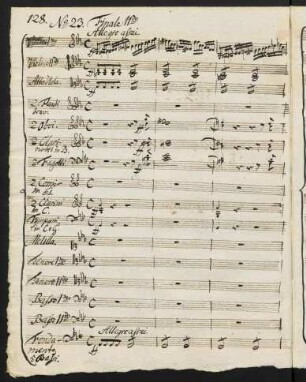 128. No. 23. Finale IIdo
Allegro assai.
Violino Imo
Violino IIdo
Alto Viola
2 Flauti
2 Oboi
2 Clari-
netti in B.
2 Fagotti
2 Corni
in
2 Clarini
in C.
Timpani
in C e G
Tenore Imo
Tenore IIdo
Basso Imo
Basso IIdo
Allegro assai.
Fonda-
mento
e Bassi.